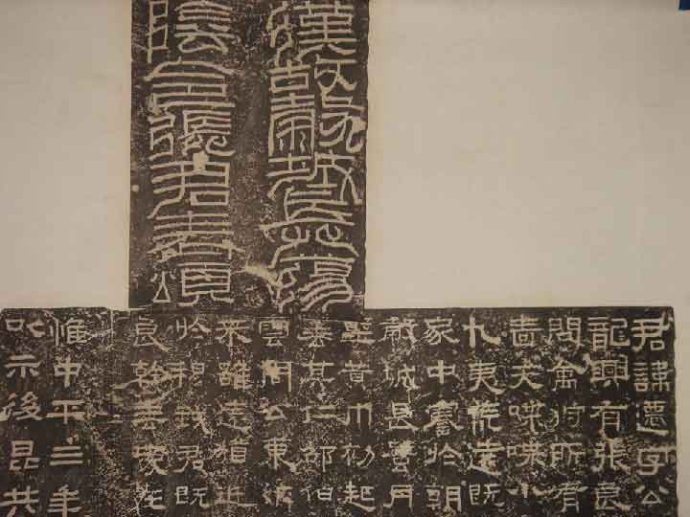 漢故穀城長蕩
陰令張君表頌
君諱遷字公
龍興有張良
問禽狩所有
嗇夫喋喋小
九夷荒遠既
家中謇於朝
穀城長蠶月
壄黃巾初起
垂其仁邵伯
雲周公東征
來雖遠猶近
於穆我君既
良幹垂愛在
惟中平三年
以示後昆共